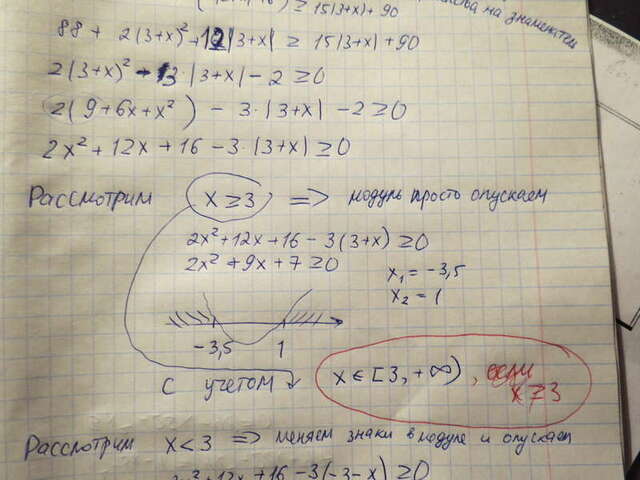 ≥ 15|3+x| + 90
на знаменатель
88 + 2(3+x)² + 12|3+x| ≥ 15|3+x| + 90
2(3+x)² - 3·|3+x| - 2 ≥ 0
2(9+6x+x²) - 3·|3+x| - 2 ≥ 0
2x² + 12x + 16 - 3·|3+x| ≥ 0
Рассмотрим x ≥ 3 => модуль просто опускаем
2x² + 12x + 16 - 3(3+x) ≥ 0
2x² + 9x + 7 ≥ 0
x₁ = -3,5
x₂ = 1
-3,5 1
с учетом x ∈ [3, +∞), если
x ≥ 3
Рассмотрим x < 3 => меняем знаки в модуле и опускаем
+12x + 16 - 3(-3-x) ≥ 0